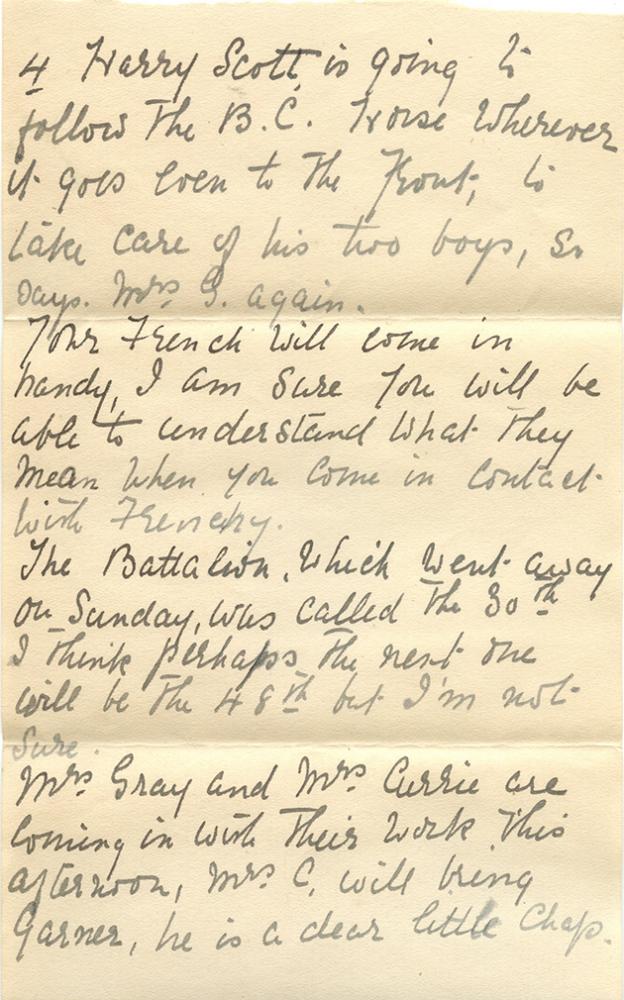 4 Harry Scott, is going to
follow the B.C. Horse wherever
it goes even to the Front, to
take care of his two boys, so
says. Mrs G. again.
Your French will come in
handy, I am sure you will be
able to understand what they
mean when you come in contact
with Frenchy.
The Battalion, which went away
on Sunday, was called the 30th
I think perhaps the next one
will be the 48th but I'm not
sure.
Mrs Gray and Mrs Currie are
coming in with their work this
afternoon, Mrs C, will bring
Garner, he is a dear little chap.